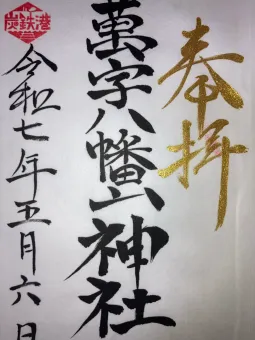 奉拝
萬字八幡神社
令和七年五月六日
炭鉄港